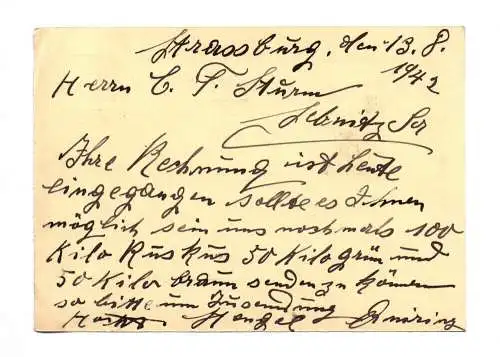 Strassburg, den 13. 8.
1942
Herrn C. F. Sturm
Sebnitz Sa
Ihre Rechnung ist heute
eingegangen sollte es Ihnen
möglich sein uns nochmals 100
Kilo Ruskus 50 Kilo grün und
50 Kilo braun senden zu können
so bitte um Zusendung
Hengel